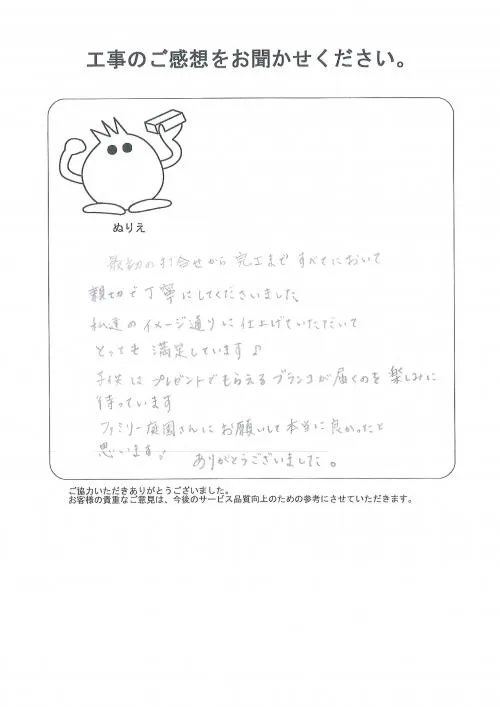 工事のご感想をお聞かせください。
ぬりえ
最初の打合せから 完工まで すべてにおいて
親切で丁寧にしてくださいました。
私達の イメージ通りに 仕上げていただいて
とっても 満足しています♪
子供は プレゼントでもらえる ブランコが届くのを 楽しみに
待っています
ファミリー庭園さんに お願いして 本当に 良かったと
思います。 ありがとうございました。
ご協力いただきありがとうございました。
お客様の貴重なご意見は、今後のサービス品質向上のための参考にさせていただきます。